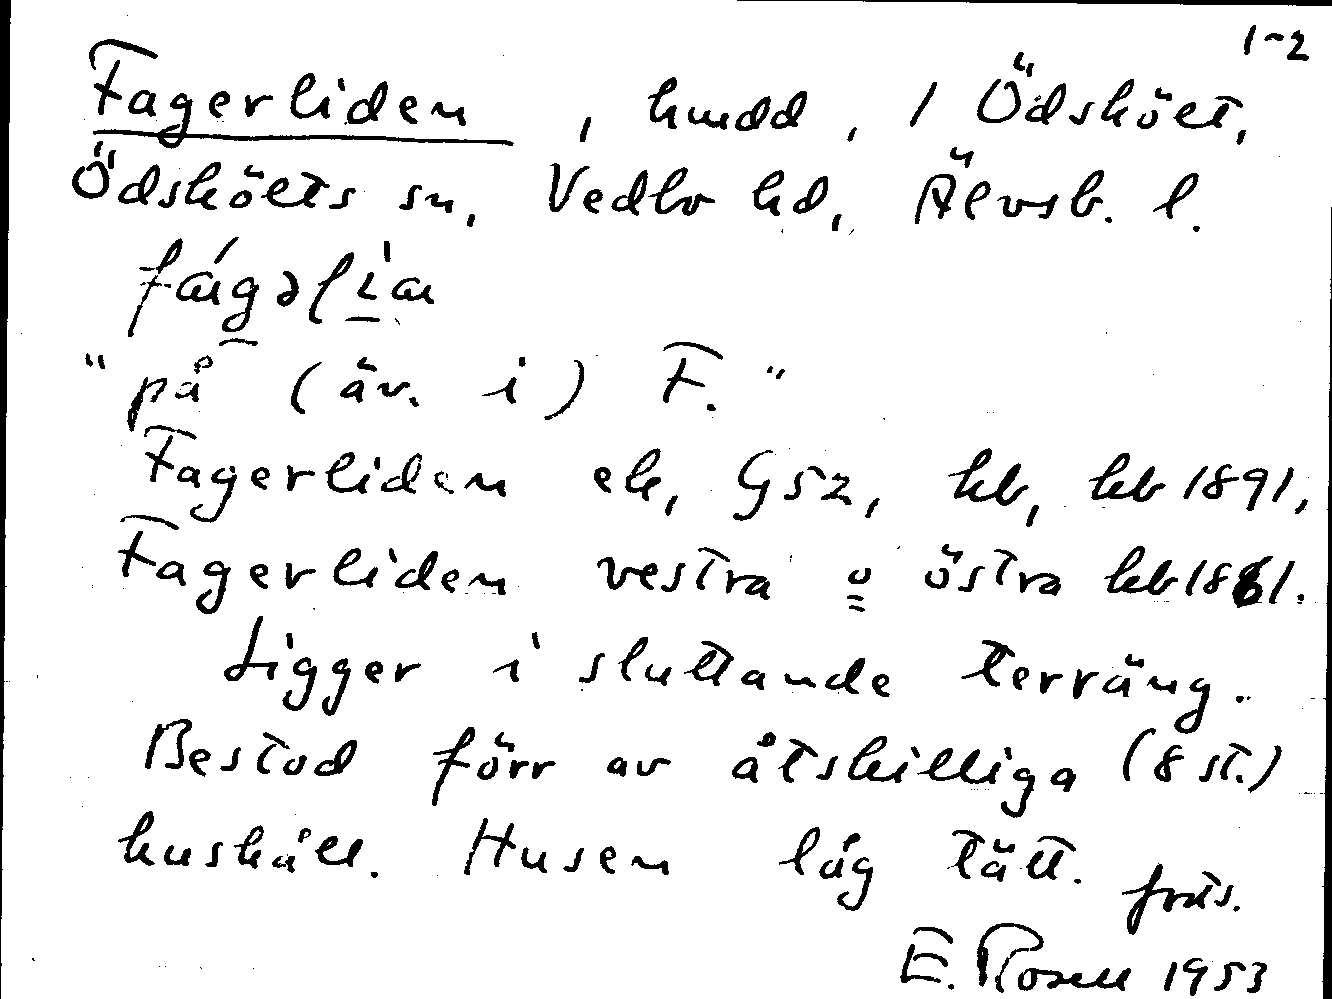 1-2
Fagerliden, hmdd, / Ödskölt,
Ödskölts sn, Vedbo hd, Älvsb. l.
"på (äv. i) F."
Fagerliden ek, GSz, kb, kb 1891,
Fagerliden vestra o östra kb 1861.
Ligger i sluttande terräng.
Bestod förr av åtskilliga (8 st.)
hushåll. Husen låg tätt. forts.
E. Rosell 1953